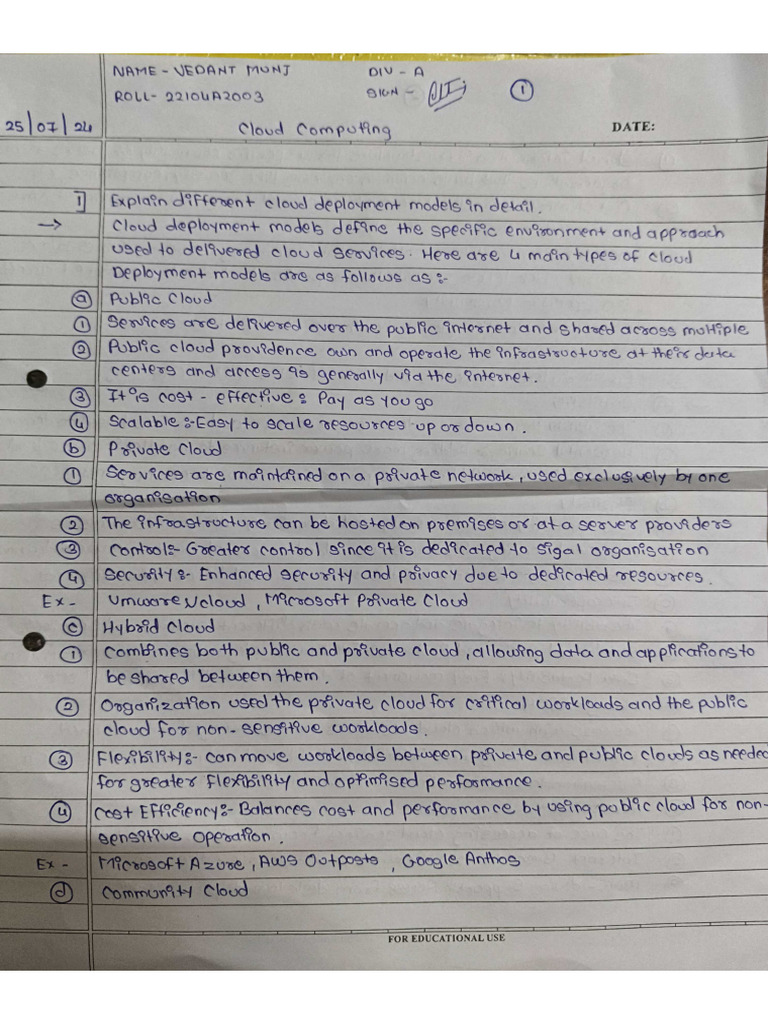 NAME - VEDANT MUNJ DIV - A
ROLL - 22104A2003 SIGN - 1
25/07/24 Cloud Computing DATE:
1] Explain different cloud deployment models in detail.
→ Cloud deployment models define the specific environment and approach
used to delivered cloud services. Here are 4 main types of cloud
Deployment models are as follows as :-
a Public Cloud
1 Services are delivered over the public internet and shared across multiple
2 Public cloud providence own and operate the infrastructure at their data
centers and access is generally via the internet.
3 It is cost - effective : Pay as you go
4 Scalable :- Easy to scale resources up or down.
b Private Cloud
1 Services are maintained on a private network, used exclusively by one
organisation
2 The infrastructure can be hosted on premises or at a server providers
3 Control :- Greater control since it is dedicated to sigal organisation
4 Security :- Enhanced security and privacy due to dedicated resources.
Ex - Vmware Vcloud, Microsoft Private Cloud
c Hybrid Cloud
1 Combines both public and private cloud, allowing data and applications to
be shared between them.
2 Organization used the private cloud for critical workloads and the public
cloud for non - sensitive workloads.
3 Flexibility :- can move workloads between private and public clouds as needed
for greater flexibility and optimised performance.
4 Cost Efficiency :- Balances cost and performance by using public cloud for non-
sensitive operation.
Ex - Microsoft Azure, AWS Outposts, Google Anthos
d Community Cloud
FOR EDUCATIONAL USE